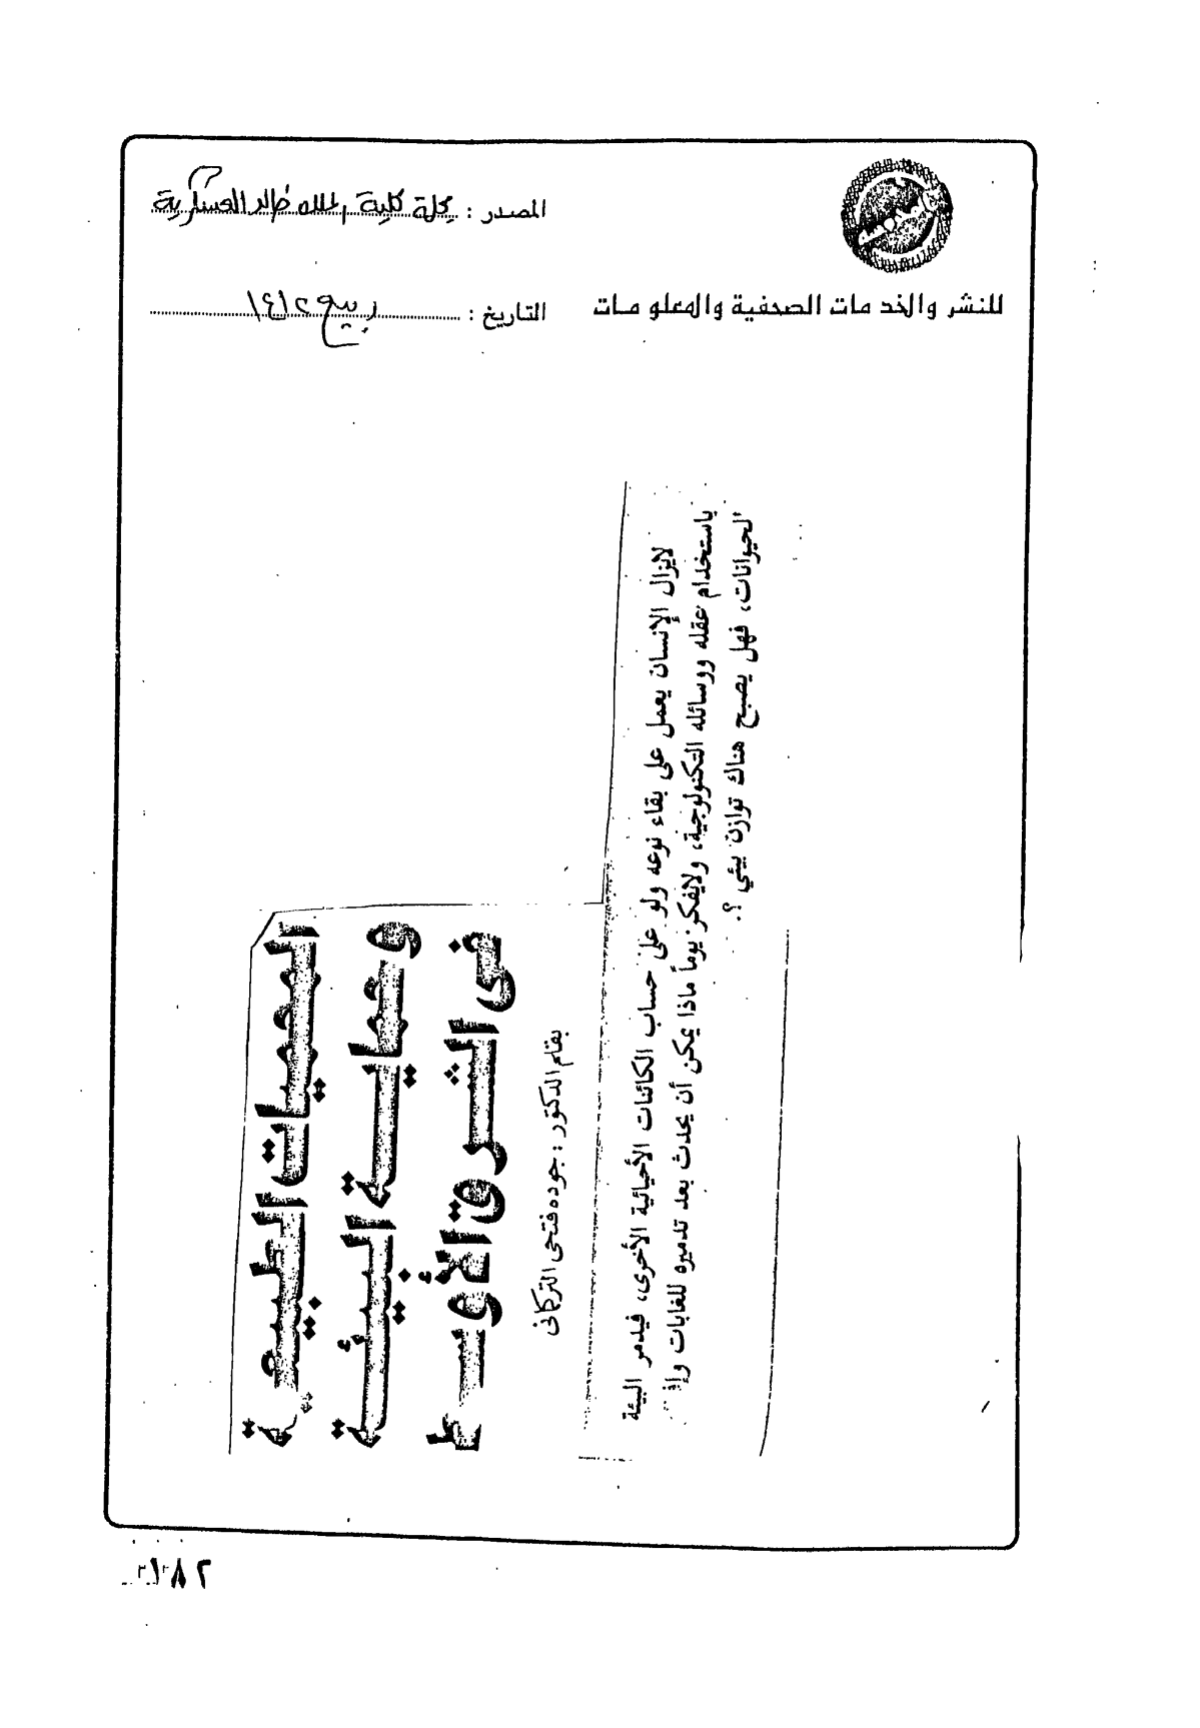 المصدر : مجلة كلية الملك خالد العسكرية
للنشر والخدمات الصحفية والمعلومات
التاريخ : ربيع ١٤١٢
المحميات الطبيعية
وحماية البيئة
فى الشرق الأوسط
بقلم الدكتور : جوده فتحى التركمانى
لايزال الإنسان يعمل على بقاء نوعه ولو على حساب الكائنات الأحيائية الأخرى، فيدمر البيئة
باستخدام عقله ووسائله التكنولوجية، ولايفكر يوماً ماذا يمكن أن يحدث بعد تدميره للغابات
الحيوانات، فهل يصبح هناك توازن بيئي ؟.